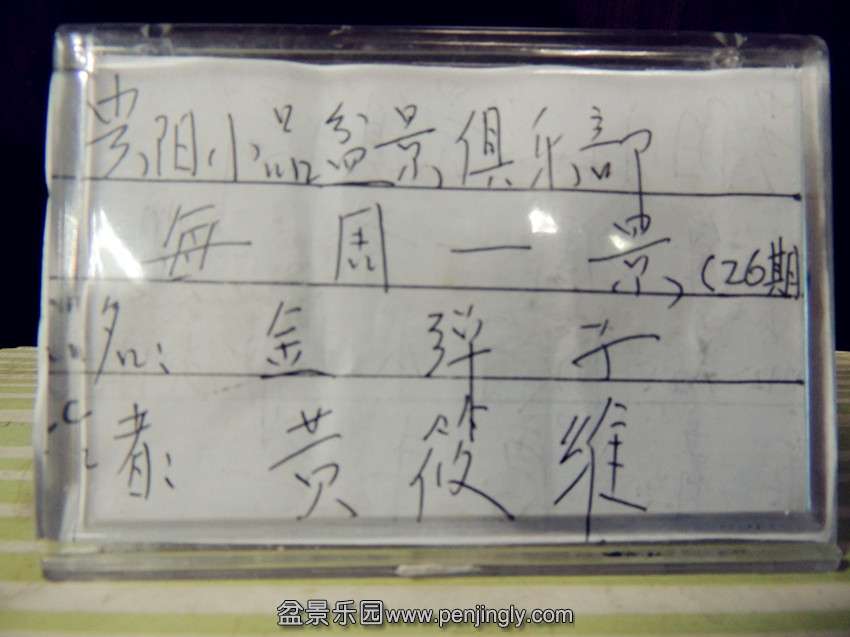 贵阳小品盆景俱乐部
每周一景(26期
名: 金弹子
者: 黄筱维
盆景乐园www.penjingly.com